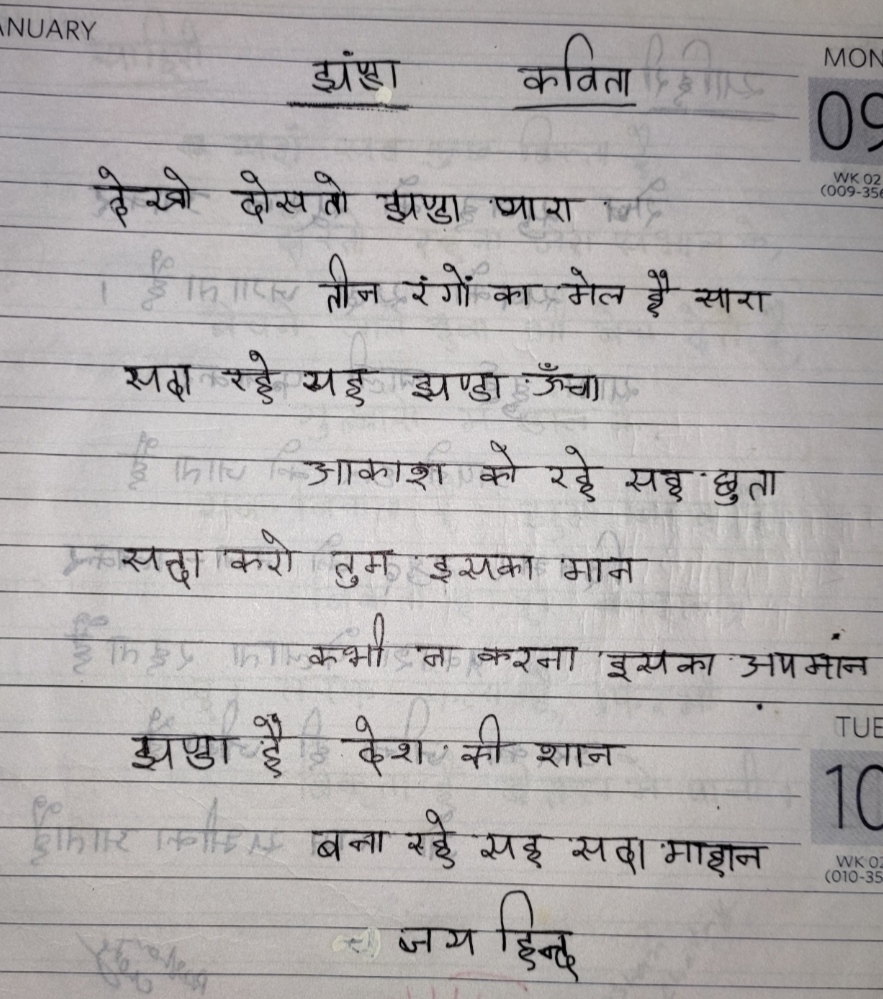 ANUARY
झंण्डा कविता
MON
09
WK 02
(009-356
देखो दोसतो झण्डा प्यारा
तीन रंगों का मेल है सारा
सदा रहे यह झण्डा ऊँचा
आकाश को रहे यह छुता
सदा करो तुम इसका मान
कभी ना करना इसका अपमांन
TUE
10
WK 02
(010-35
झण्डा है देश की शान
बना रहे यह सदा माहान
जय हिन्द